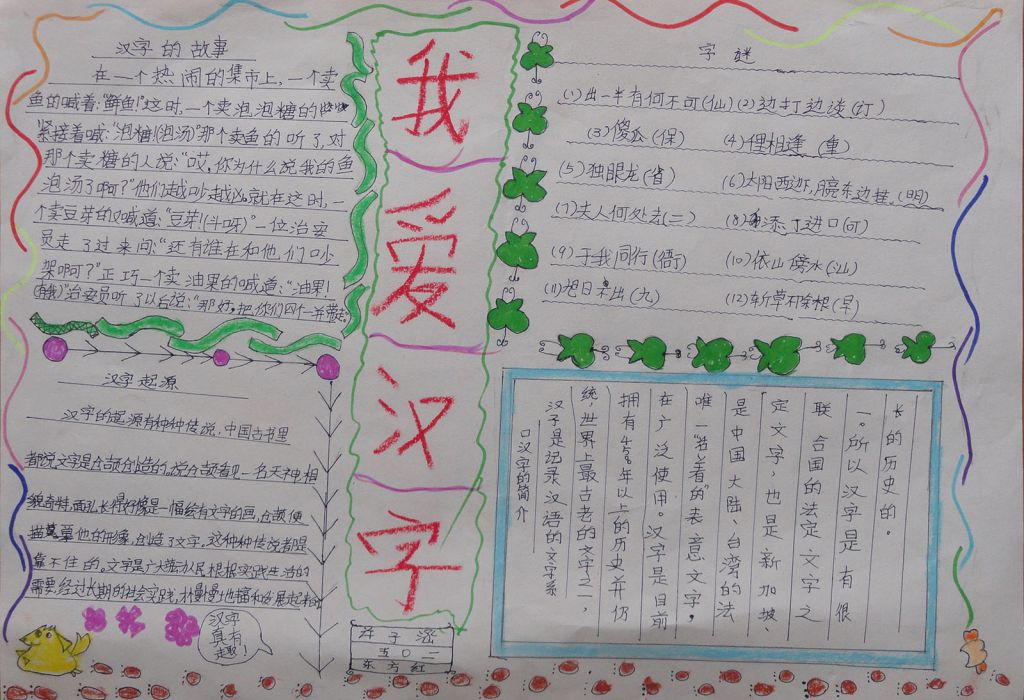 汉字的故事
在一个热闹的集市上,一个卖
鱼的喊着:“鲜鱼!”这时,一个卖泡泡糖的
紧接着喊:“泡糖!(泡汤)”那个卖鱼的听了,对
那个卖糖的人说:“哎,你为什么说我的鱼
泡汤了啊?”他们越吵越凶。就在这时,一
个卖豆芽的又喊道:“豆芽!(斗呀)”一位治安
员走了过来问:“还有谁在和他们吵
架啊?”正巧一个卖油果的喊道:“油果!
(有我)”治安员听了以后说:“那好,把你们四个一并带走。
汉字起源
汉字的起源有种种传说,中国古书里
都说文字是仓颉创造的。说仓颉看见一名天神,相
貌奇特,面孔长得好像是一幅绘有文字的画,仓颉便
描摹他的形象,创造了文字。这种种传说都是
靠不住的。文字是广大劳动人民根据实践生活的
需要,经过长期的社会实践,才慢慢地丰富和发展起来的
汉字
真有
趣!
我爱汉字
五〇二
东方红
字谜
(1)出一半有何不可(仙)(2)边打边谈(订)
(3)傻瓜(保) (4)俚相逢(重)
(5)独眼龙(省) (6)太阳西边下,月亮东边挂(明)
(7)夫人何处去(二) (8)添丁进口(可)
(9)于我同行(衙) (10)依山傍水(汕)
(11)旭日东出(九) (12)斩草不除根(早)
口汉字的简介
汉字是记录汉语的文字系
统,世界上最古老的文字之一,
拥有4500年以上的历史并仍
在广泛使用。汉字是目前
唯一“活着的”表意文字,
是中国大陆、台湾的法
定文字,也是新加坡、
联合国的法定文字之
一。所以汉字是有很
长的历史的。